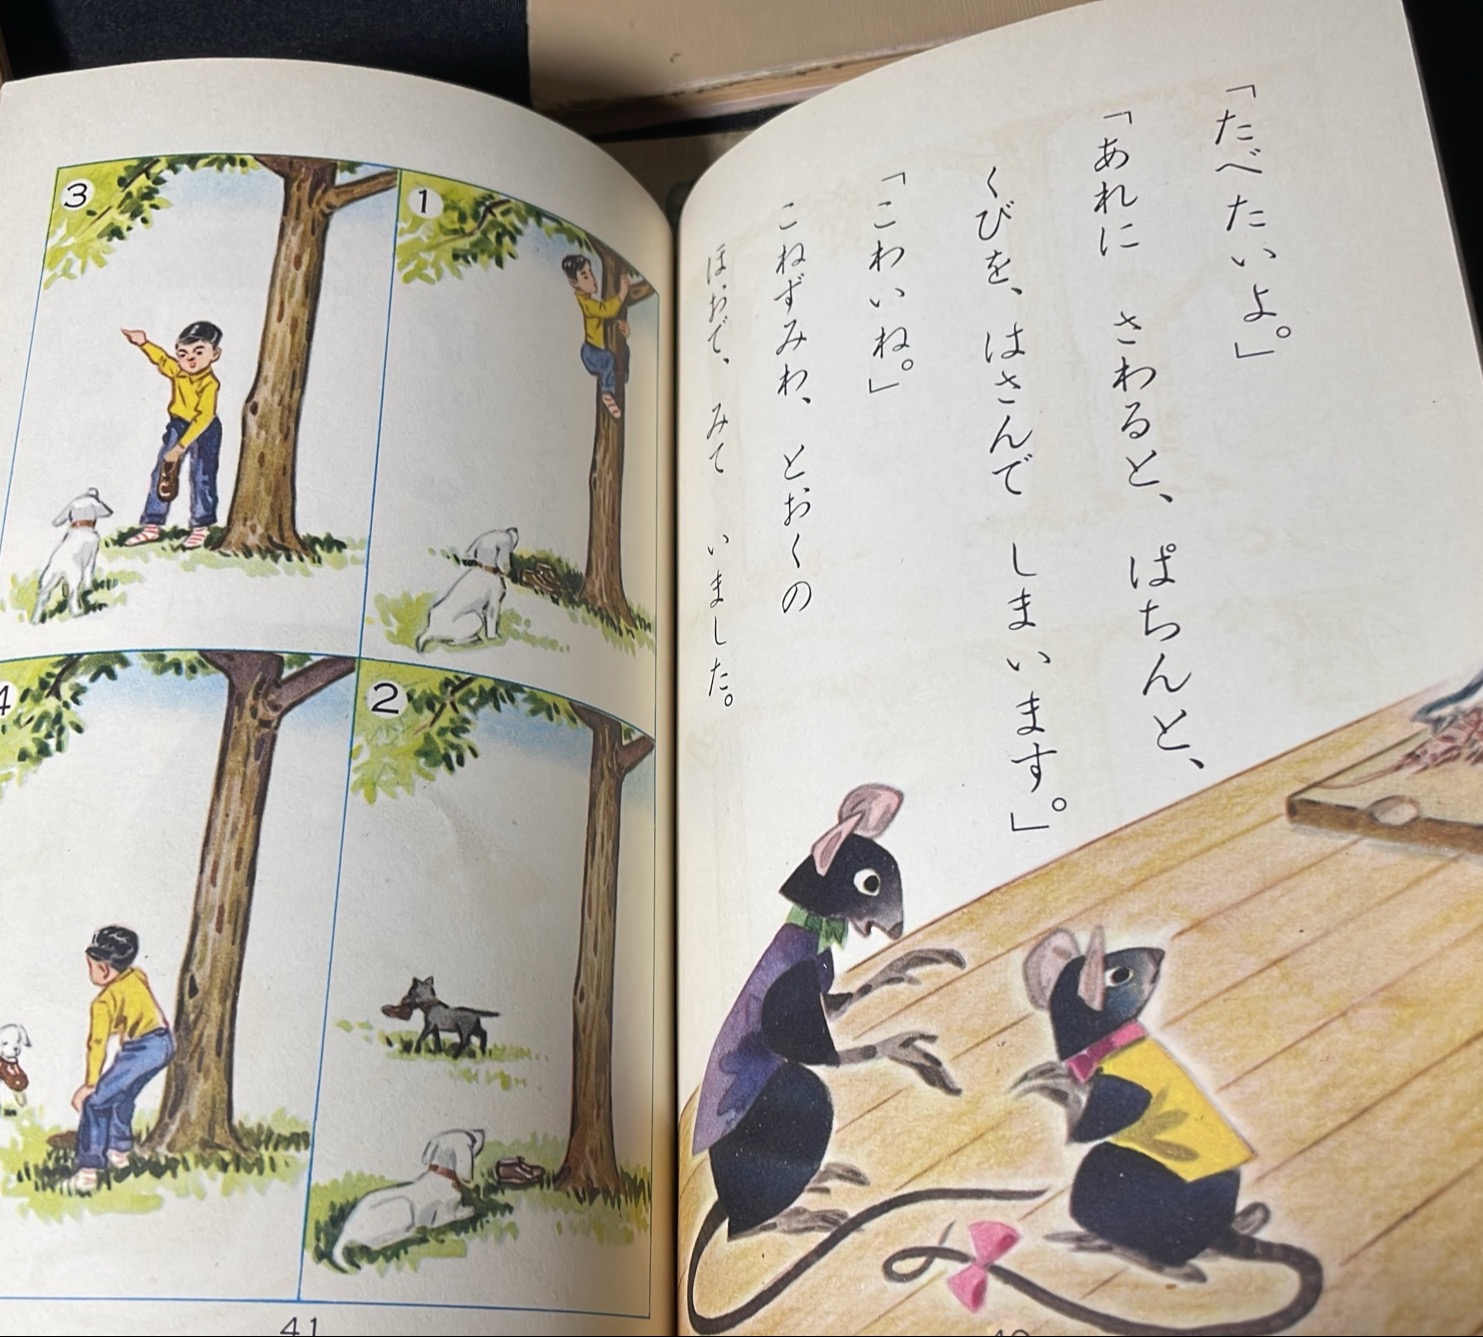 「たべたいよ。」
「あれに さわると、 ぱちんと、
くびを、 はさんで しまいます。」
「こわいね。」
こねずみわ、 とおくの
ほおで、 みて いました。
1
2
3
4
41